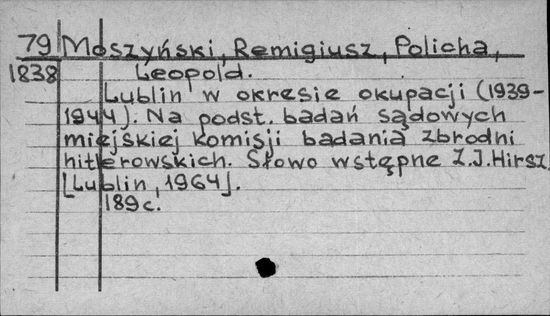 79 Moszyński, Remigiusz, Policha,
1838 Leopold.
Lublin w okresie okupacji (1939-
1944). Na podst. badań sądowych
miejskiej komisji badania zbrodni
hitlerowskich. Słowo wstępne Z.J.Hirsz.
[Lublin, 1964].
189 c.